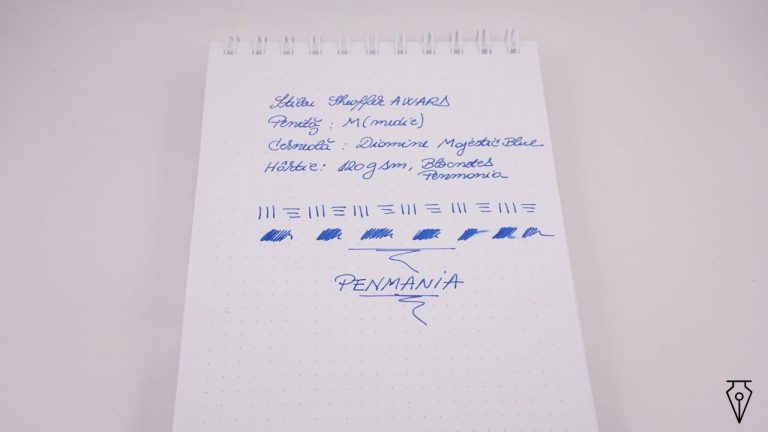 Stilou Sheaffer AWARD
Peniță : M (medie)
Cerneală : Diamine Majestic Blue
Hârtie : 120 gsm, Blocnotes
Penmania
PENMANIA